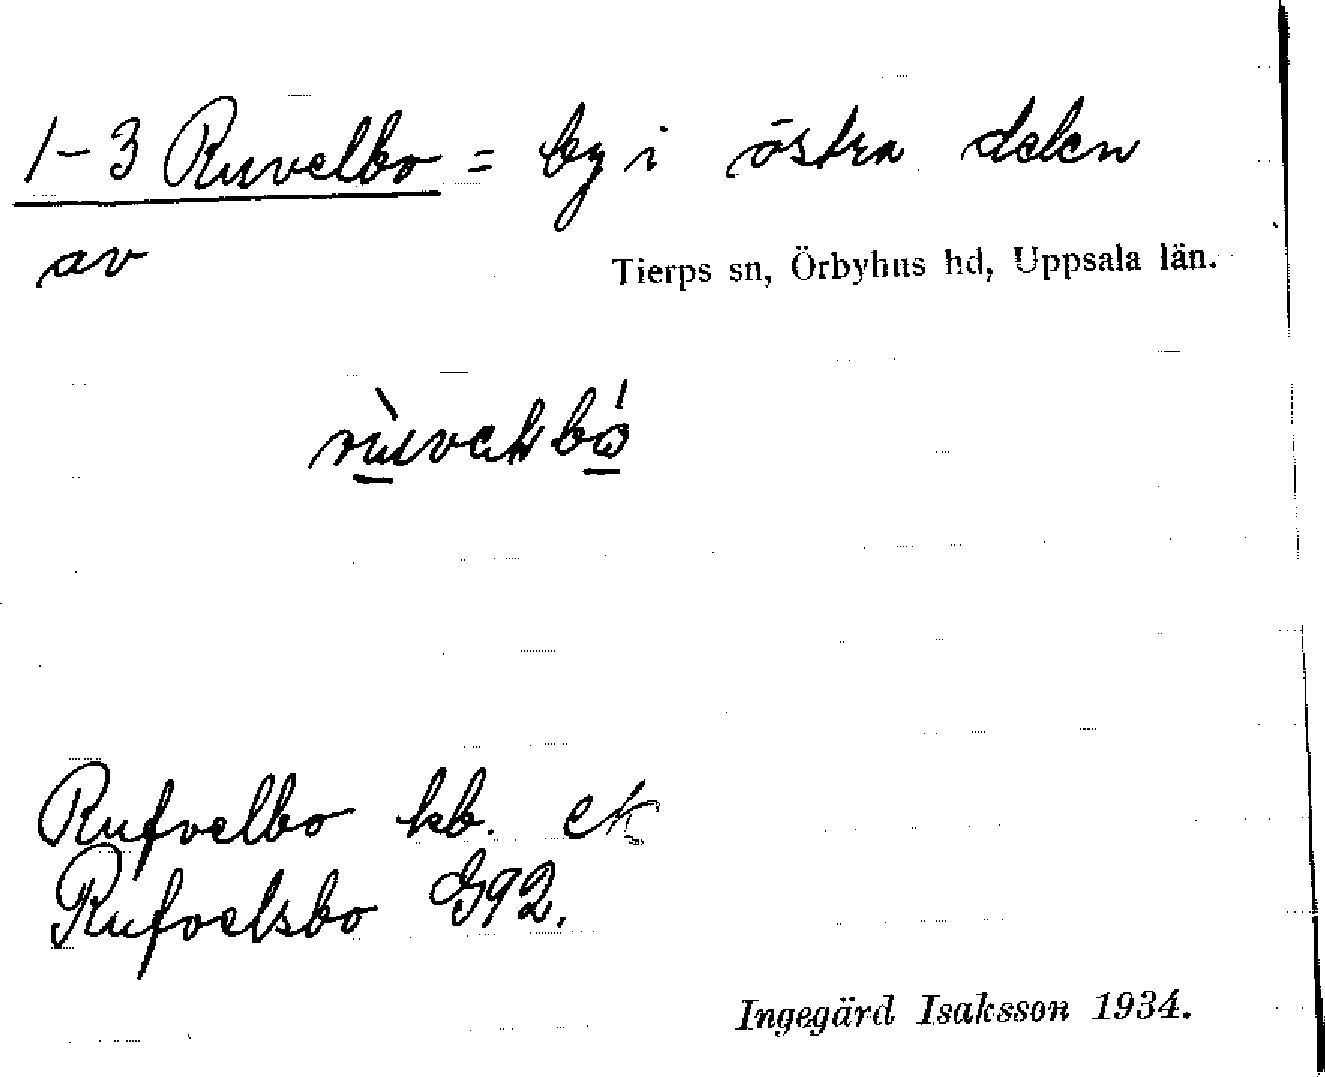 1-3 Ruvelbo = by i östra delen
av Tierps sn, Örbyhus hd, Uppsala län.
Rufvelbo kb. ek
Rufvelsbo G92.
Ingegärd Isaksson 1934.